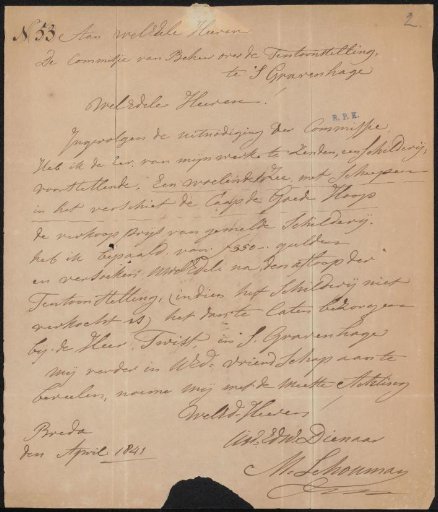 N. 53 Aan welEdele Heeren
2.
De Commitje van Beheer over de Tentoonstelling,
te 'S Gravenhage
WelEdele Heeren.
R.P.K.
Ingevolgen de uitnodiging der Commissie,
Heb ik de Eer, van mijn werk te Zenden, een Schilderij,
voorstellende. Een woelende Zee, met Scheepen
in het verschiet de Caap de Goede Hoop
de verkoop prijs van gemelde Schilderij.
heb ik bepaald van f350 - gulden
en verzoeke UwelEdele na den afloop der
Tentoonstelling, (indien het Schilderij niet
verkocht is) het dan te laten bezorgen
by de Heer. Twiss in S. Gravenhage
Mij verder in WEd. vriendschap aan te
bevelen, noeme mij met de meeste Achting
WelEd. Heeren
UwEd.w Dienaar
M. Schouman
Breda
den April 1841